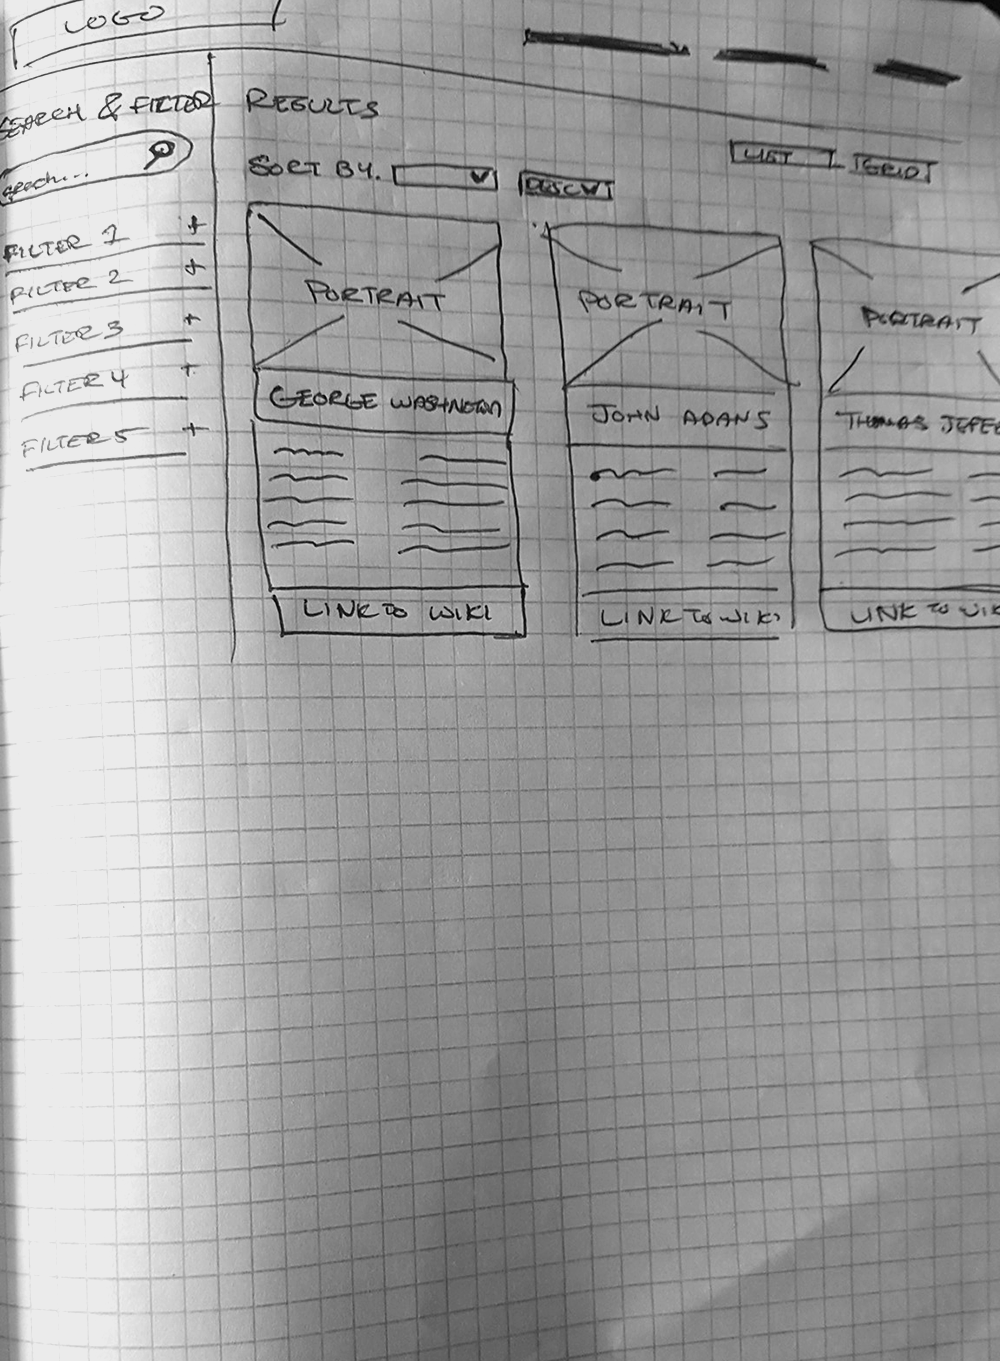 LOGO
SEARCH & FILTER
Search...
FILTER 1 +
FILTER 2 +
FILTER 3 +
FILTER 4 +
FILTER 5 +
RESULTS
SORT BY.
DESC
LIST
GRID
PORTRAIT
GEORGE WASHINGTON
LINK TO WIKI
PORTRAIT
JOHN ADAMS
LINK TO WIKI
PORTRAIT
THOMAS JEFE
LINK TO WIK